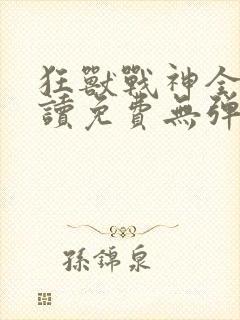 狂獸戰神全
讀免費無彈
孫錦泉